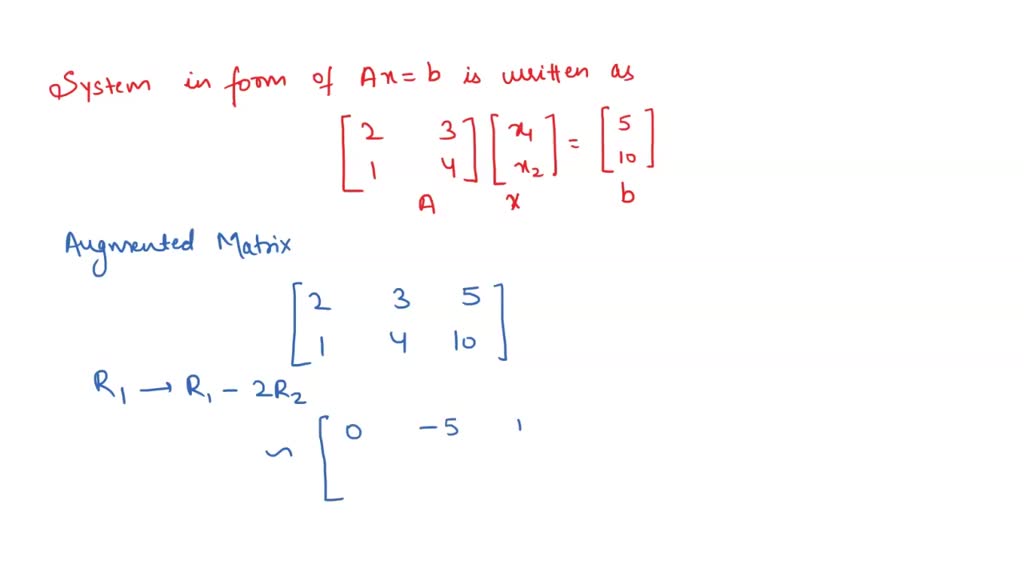 System in form of Ax=b is written as
[2 3] [x1] = [5]
[1 4] [x2] [10]
A x b
Augmented Matrix
[2 3 5]
[1 4 10]
R1 → R1 - 2R2
~ [0 -5